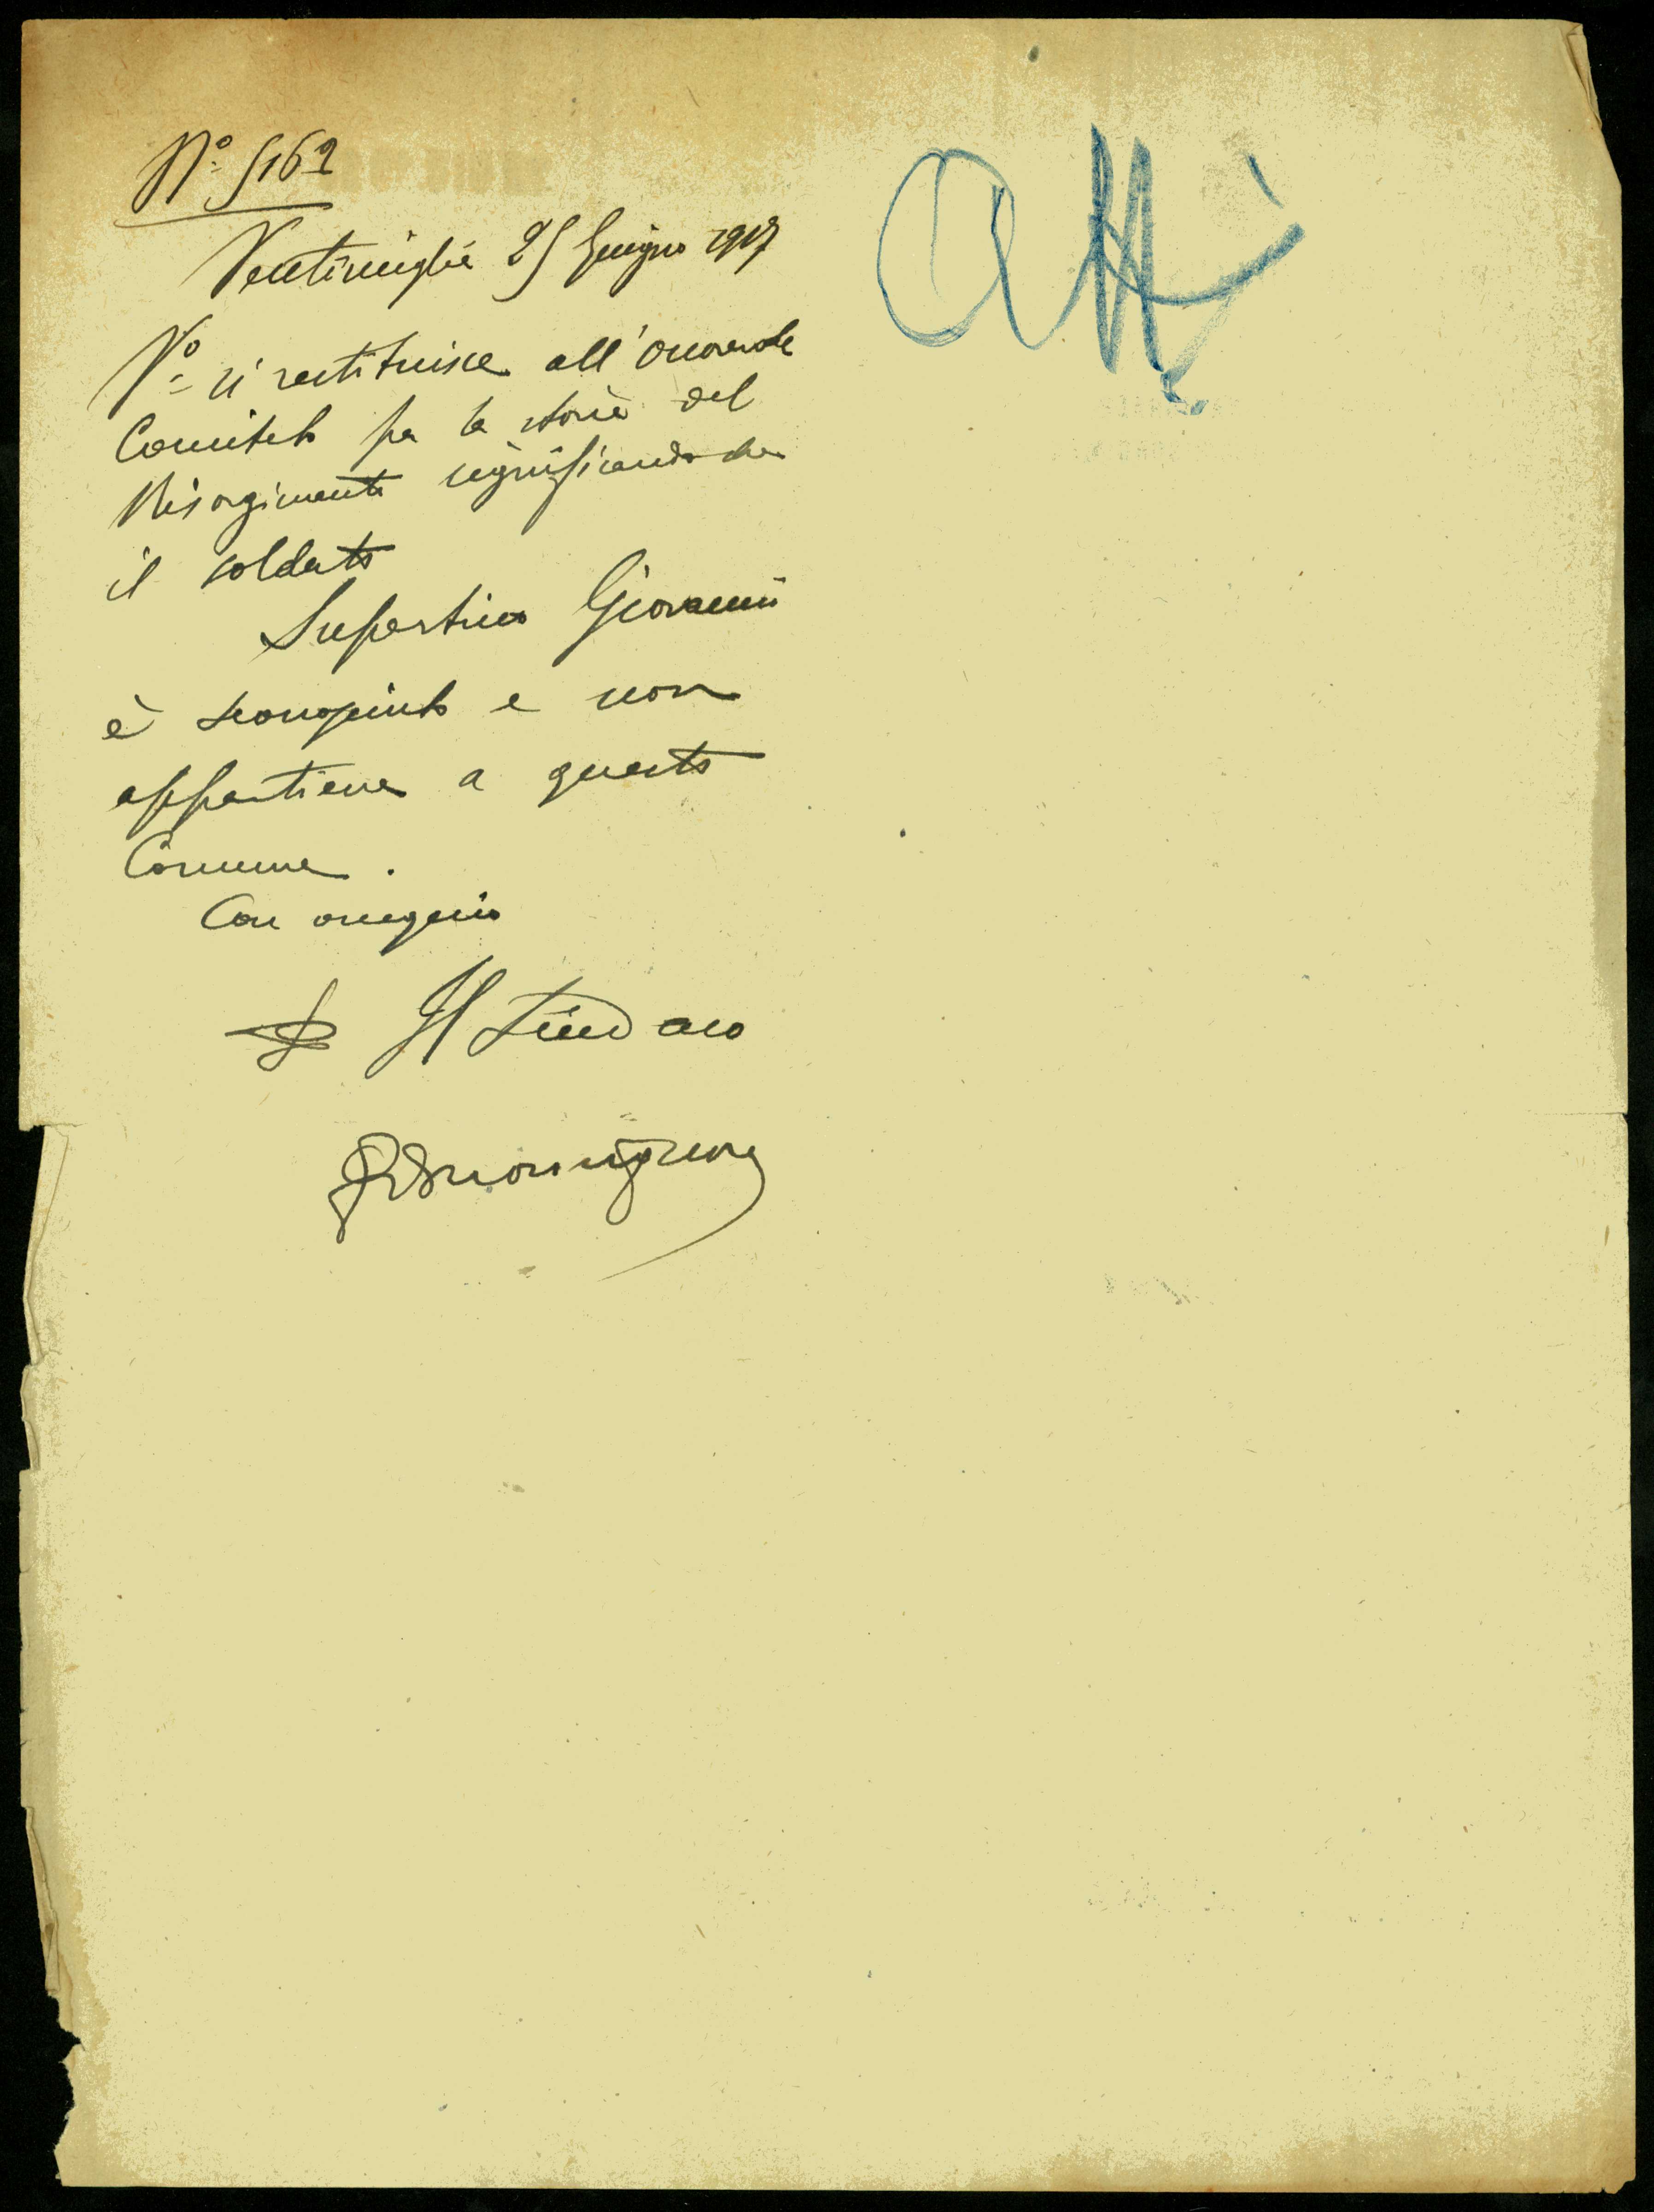 N° 5162
Atti
Ventimiglia 25 Giugno 1917
V° si restituisce all'onorevole
Comitato per la storia del
Risorgimento significando che
il soldato
Supertino Giovanni
è sconosciuto e non
appartiene a questo
Comune.
Con ossequio
Il Sindaco